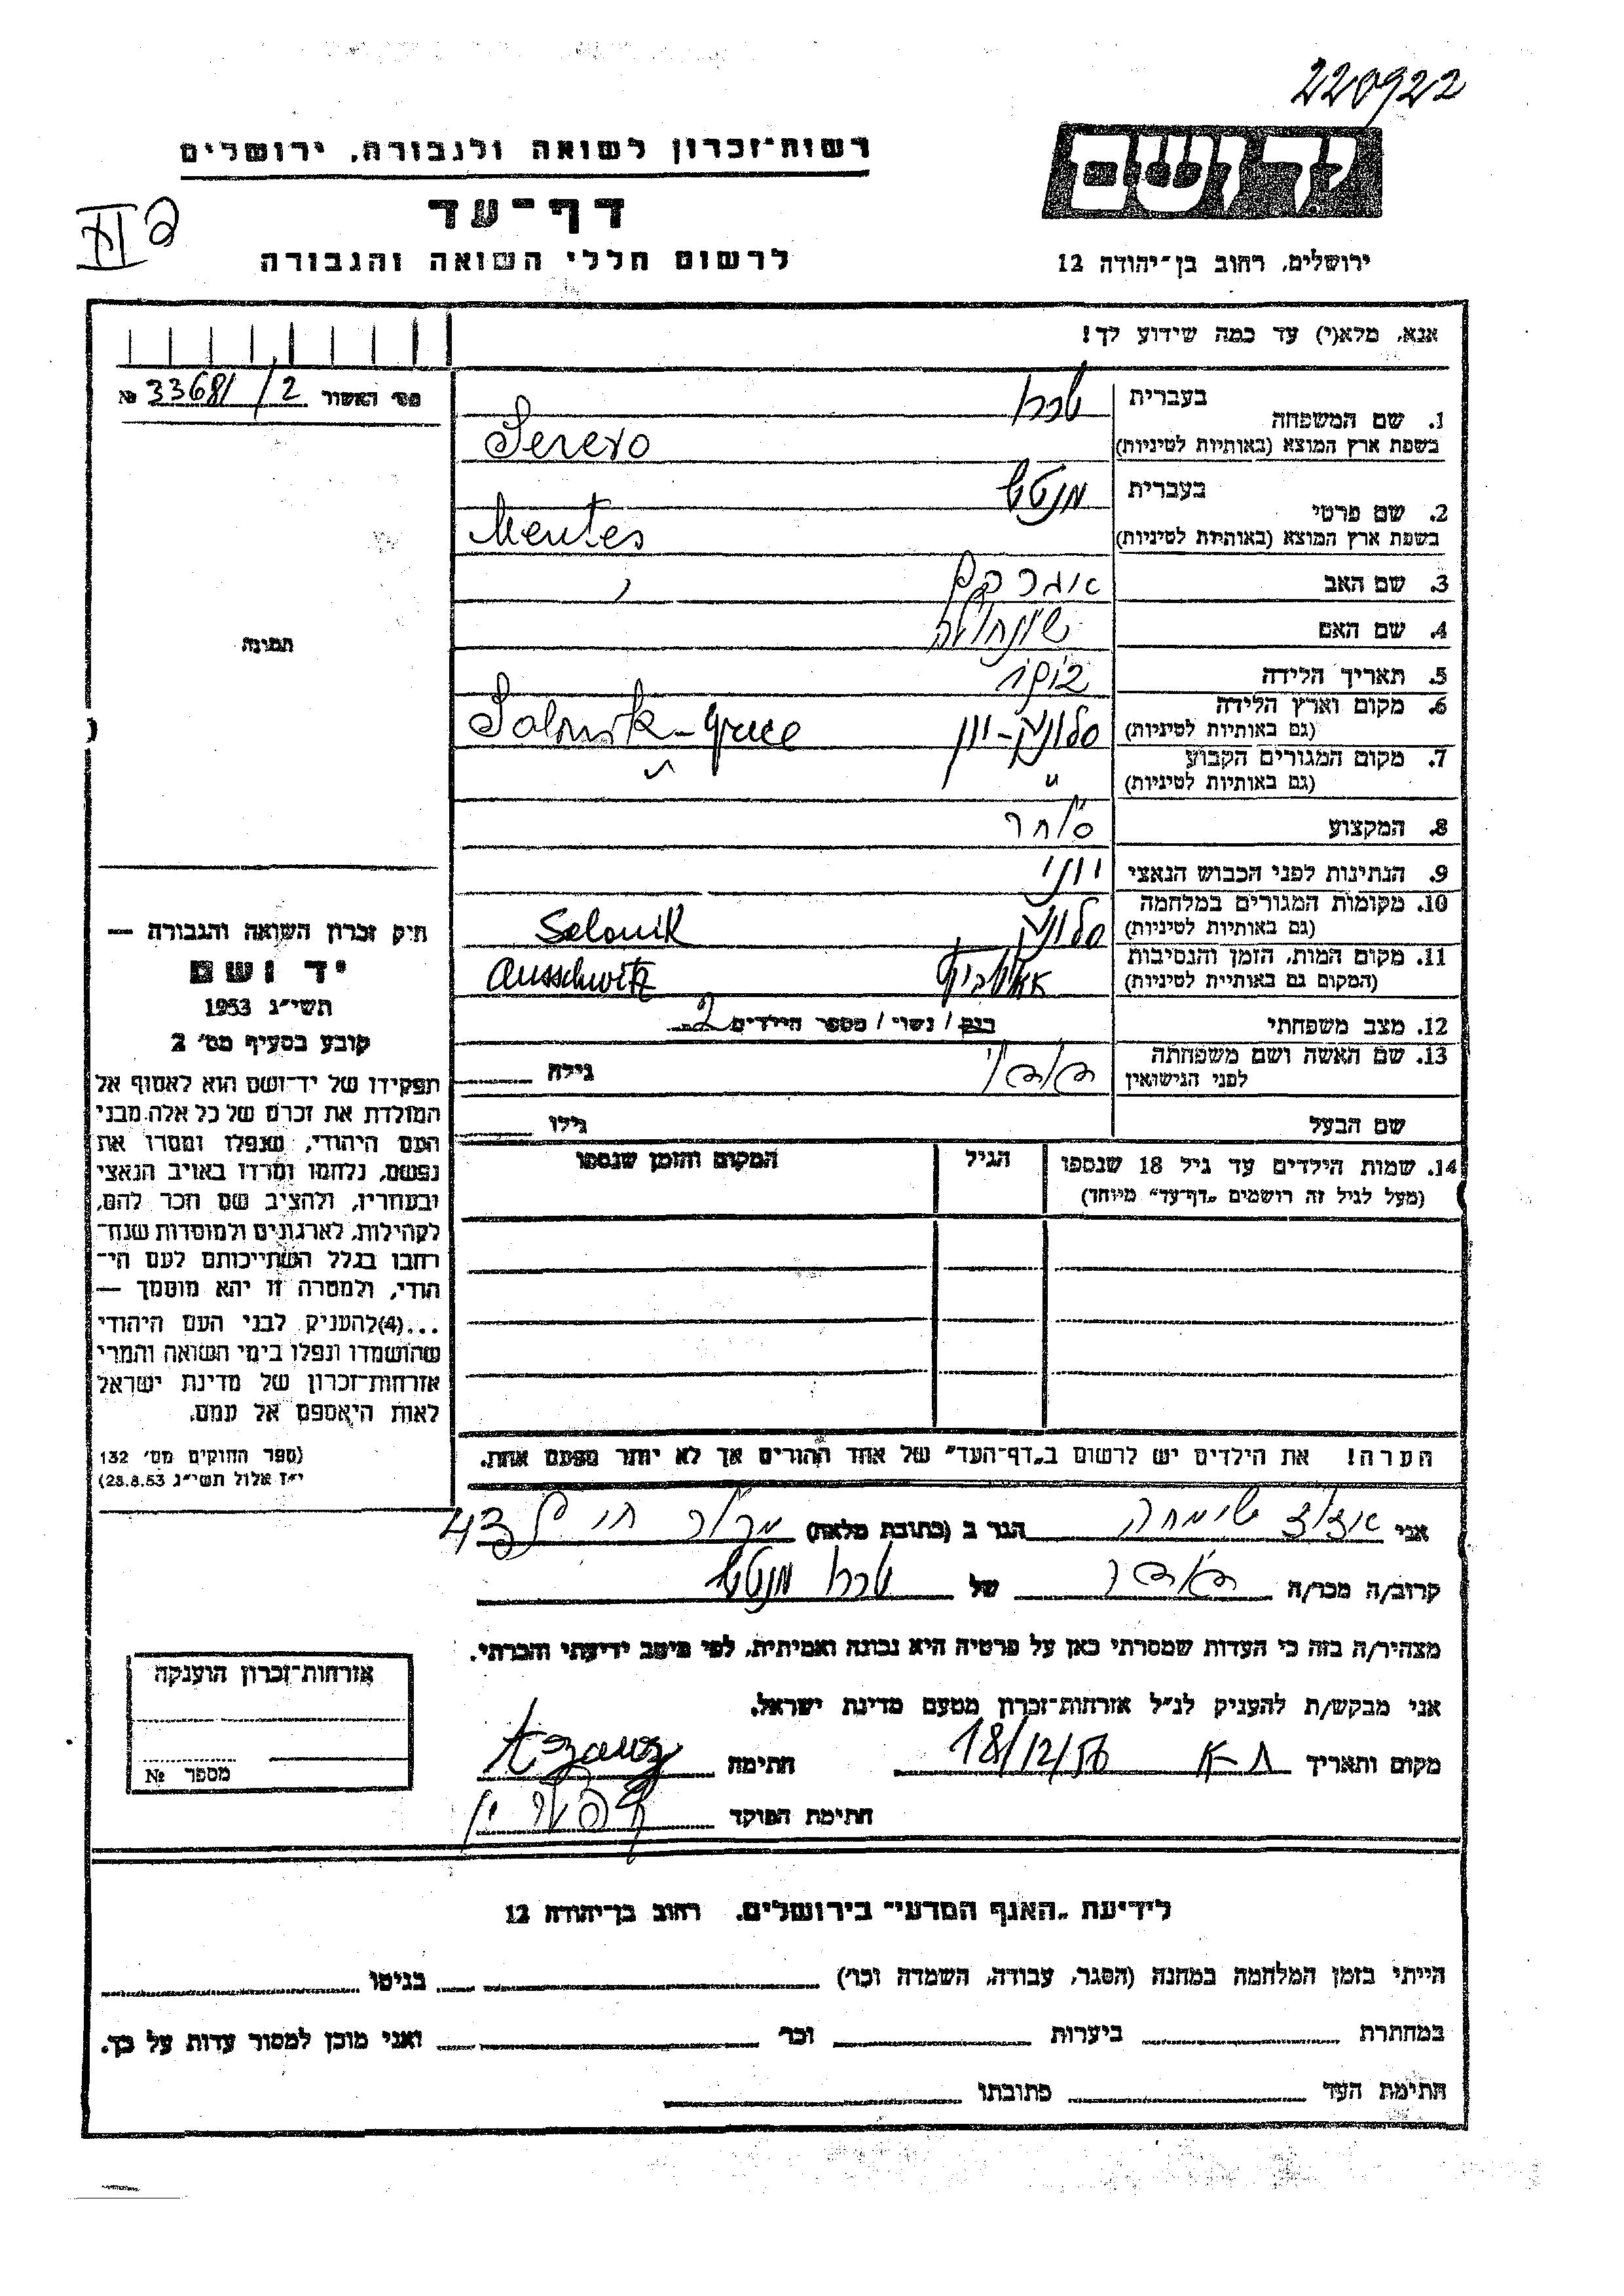 220922
רשות־זכרון לשואה ולגבורה, ירושלים
יד ושם
דף־עד
לרשום חללי השואה והגבורה
ירושלים, רחוב בן־יהודה 12
אנא, מלא(י) עד כמה שידוע לך!
מס' האשור № 33681/2
1. שם המשפחה
בעברית
בשפת ארץ המוצא (באותיות לטיניות) Serero
2. שם פרטי
בעברית מנטש
בשפת ארץ המוצא (באותיות לטיניות) Mentes
3. שם האב
4. שם האם
5. תאריך הלידה
6. מקום וארץ הלידה
(גם באותיות לטיניות) סלוניק-יון Salonik-Grece
7. מקום המגורים הקבוע
(גם באותיות לטיניות) " "
8. המקצוע סוחר
9. הנתינות לפני הכבוש הנאצי יוני
10. מקומות המגורים במלחמה
(גם באותיות לטיניות) סלוניק Salonik
11. מקום המות, הזמן והנסיבות
(המקום גם באותיית לטיניות) Ausschwitz
12. מצב משפחתי רווק / נשוי / מספר הילדים 2
13. שם האשה ושם משפחתה
לפני הנישואין
גילה
שם הבעל גילו
14. שמות הילדים עד גיל 18 שנספו הגיל המקום והזמן שנספו
(מעל לגיל זה רושמים „דף־עד” מיוחד)
הערה! את הילדים יש לרשום ב„דף־העד” של אחד ההורים אך לא יותר מפעם אחת.
תמונה
חוק זכרון השואה והגבורה —
יד ושם
תשי״ג 1953
קובע בסעיף מס׳ 2
תפקידו של יד־ושם הוא לאסוף אל
המולדת את זכרם של כל אלה מבני
העם היהודי, שנפלו ומסרו את
נפשם, נלחמו ומרדו באויב הנאצי
ובעוזריו, ולהציב שם וזכר להם,
לקהילות, לארגונים ולמוסדות שנח־
רבו בגלל השתייכותם לעם הי־
הודי, ולמטרה זו יהא מוסמך —
...(4)להעניק לבני העם היהודי
שהושמדו ונפלו בימי השואה והמרי
אזרחות־זכרון של מדינת ישראל
לאות היאספם אל עמם.
(ספר החוקים מס׳ 132
י״ז אלול תשי״ג 28.8.53)
אני שימחה הגר ב (כתובת מלאה) 43
קרוב/ה מכר/ה של מנטש
מצהיר/ה בזה כי העדות שמסרתי כאן על פרטיה היא נכונה ואמיתית, לפי מיטב ידיעתי והכרתי.
אני מבקש/ת להעניק לנ״ל אזרחות־זכרון מטעם מדינת ישראל.
מקום ותאריך 18/12/56 חתימה
חתימת הפוקד
אזרחות־זכרון הוענקה
מספר №
לידיעת „האגף המדעי” בירושלים, רחוב בן־יהודה 12
הייתי בזמן המלחמה במחנה (הסגר, עבודה, השמדה וכו׳) בגיטו
במחתרת ביערות וכו׳ ואני מוכן למסור עדות על כך.
חתימת העד כתובתו